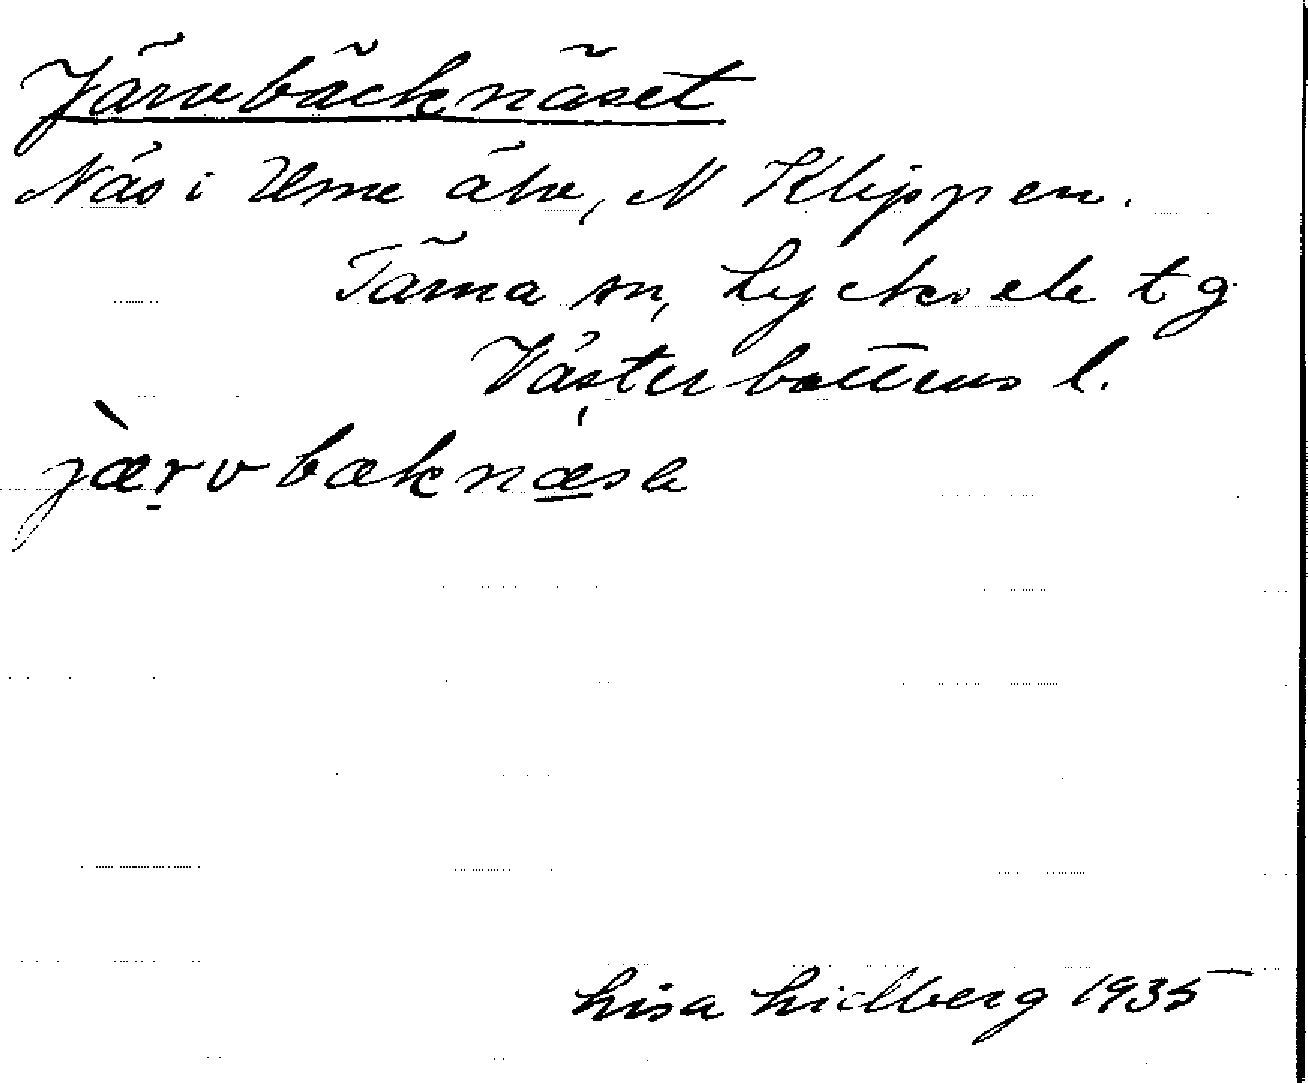 Järvbäcknäset
Näs i Ume älv, N Klippen.
Tärna sn, Lycksele tg
Västerbottens l.
jærvbæknæsa
Lisa Lidberg 1935